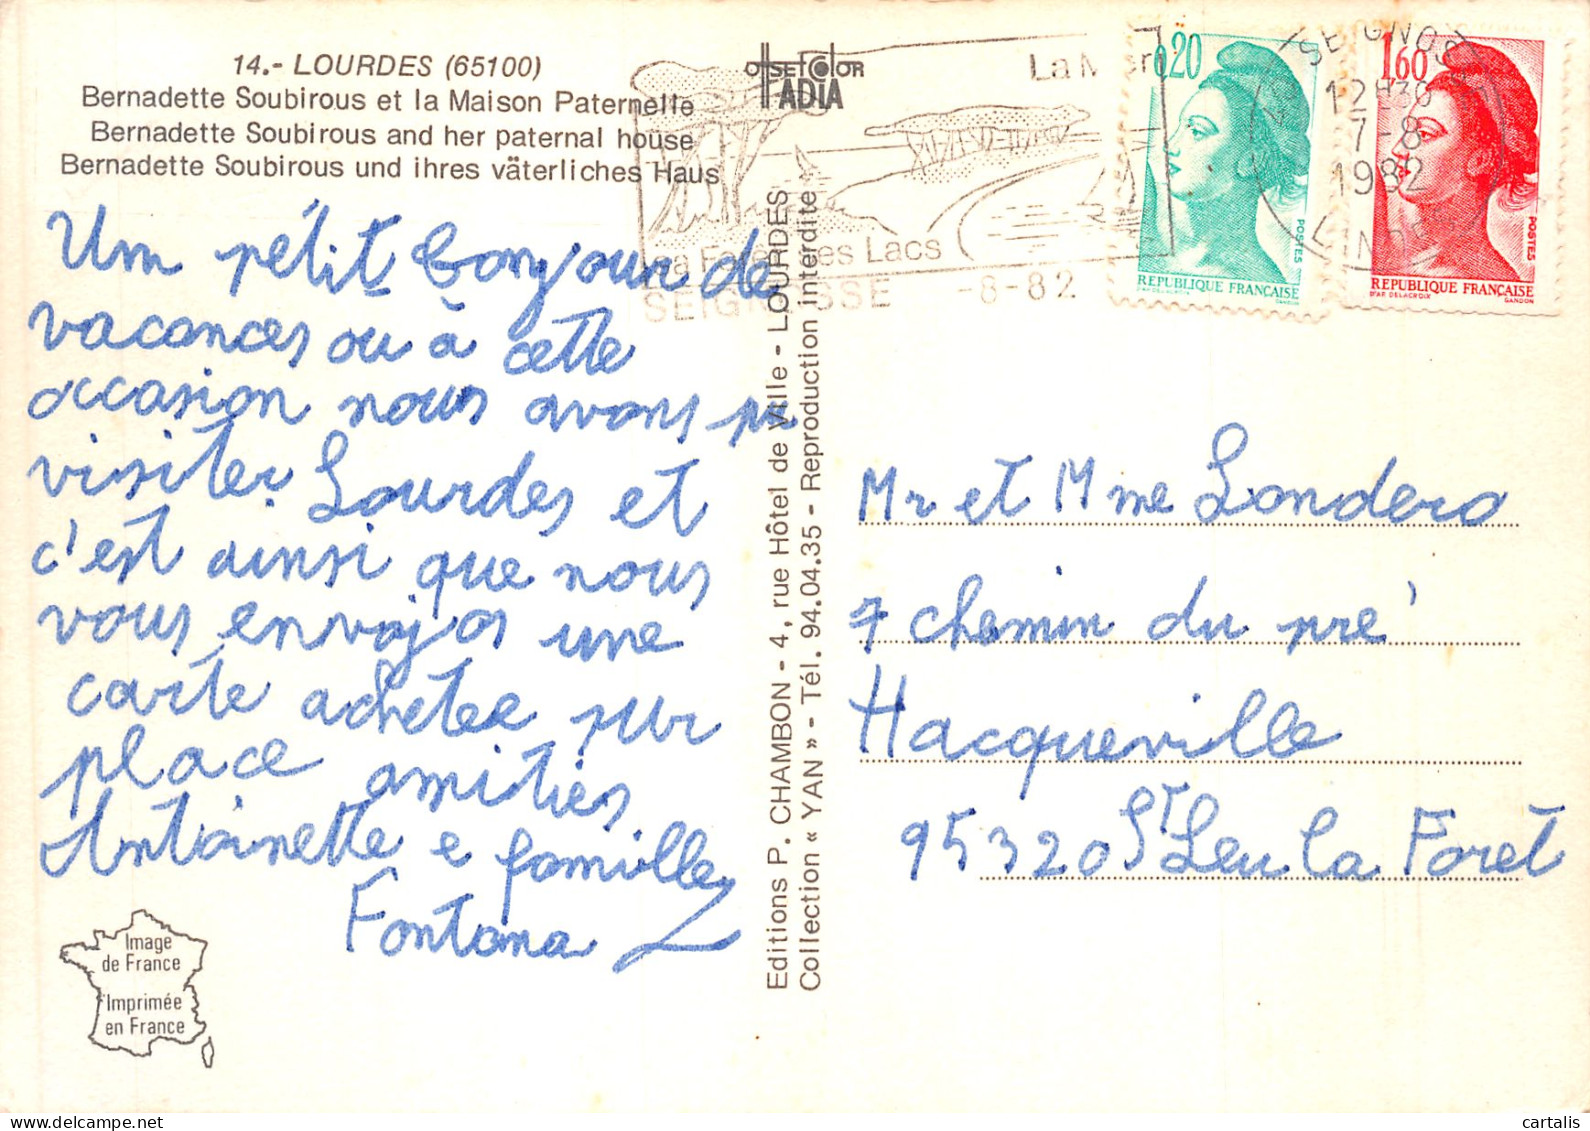 14.- LOURDES (65100)
Bernadette Soubirous et la Maison Paternelle
Bernadette Soubirous and her paternal house
Bernadette Soubirous und ihres väterliches Haus
Um pétit bonjour de
vacances ou à cette
occasion nous avons pu
visiter Lourdes et
c'est ainsi que nous
vous envojos une
carte achetee sur
place amitiés
Antoinette e famille
Fontana
Image
de France
Imprimée
en France
Editions P. CHAMBON - 4, rue Hôtel de Ville - LOURDES
Collection « YAN » - Tél. 94.04.35 - Reproduction interdite
OFFSET COLOR
ADIA
La Mer
Lacs
-8-82
0,20
POSTES
REPUBLIQUE FRANÇAISE
D'AP. DELACROIX
GANDON
1,60
POSTES
REPUBLIQUE FRANÇAISE
D'AP. DELACROIX
GANDON
SEIGNOSSE
12H30
7-8
1982
Mr et Mme Londero
7 chemin du pré
Hacqueville
95320 St Leu la Foret
cartalis